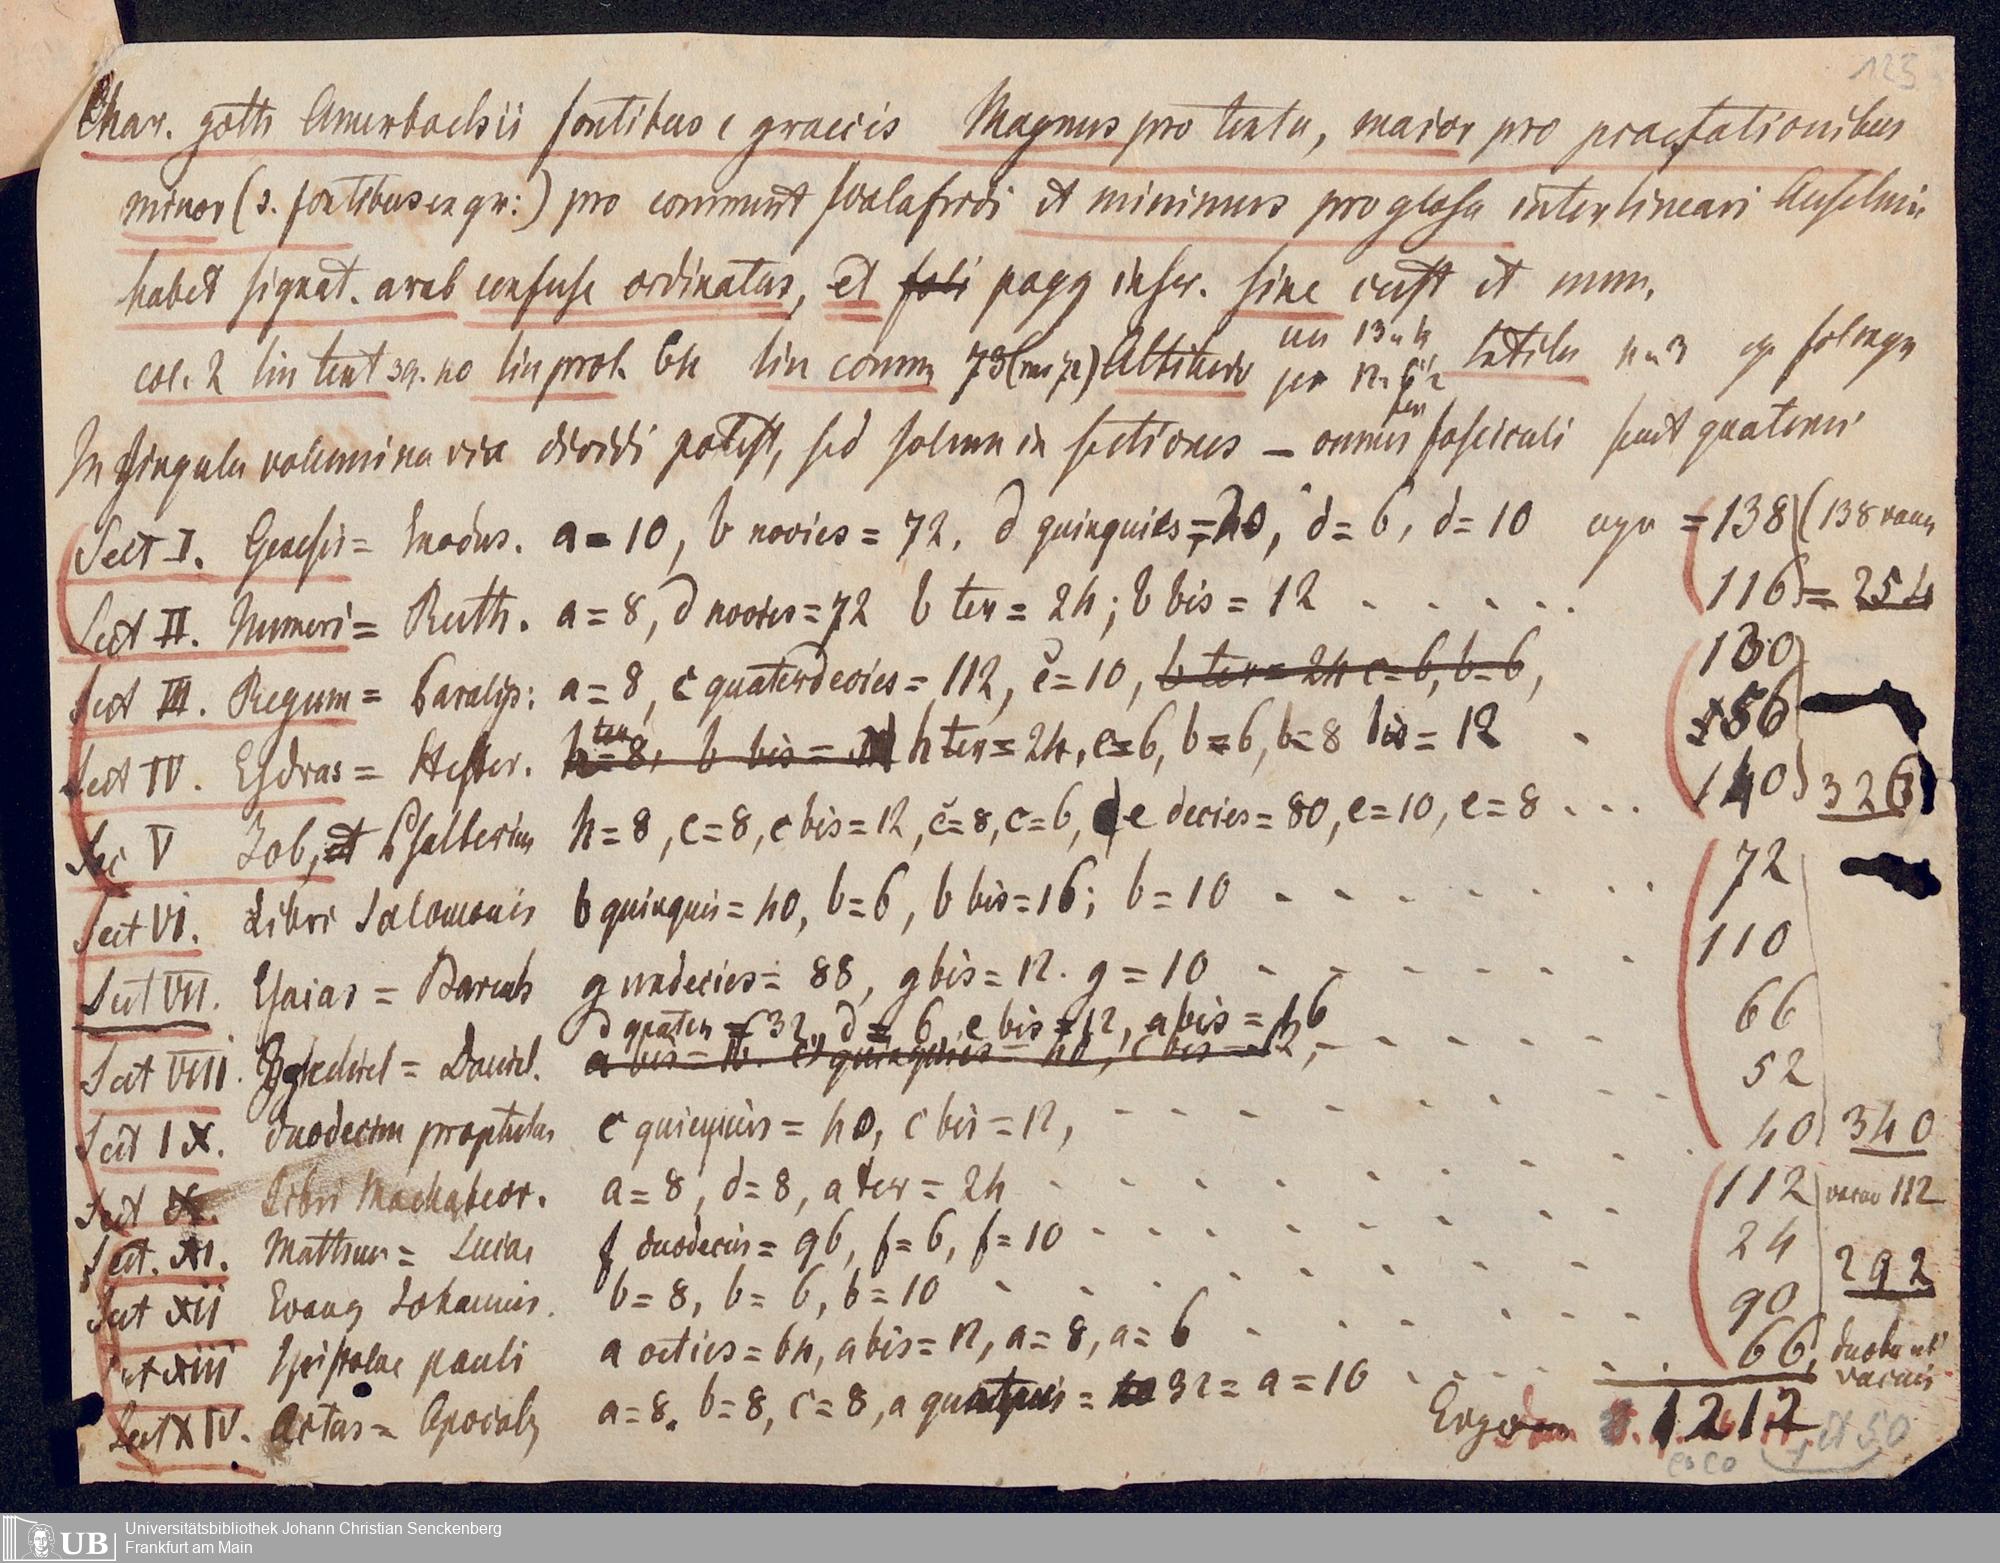 123
Char. goth Amerbachii fontibus e graecis Magnus pro textu, maior pro praefationibus
minor (s. fontibus ex gr:) pro comment Walafridi et minimus pro glosa interlineari Anselmi
habet signat. arab confuse ordinatas, et foli pagg inscr. sine cust et num.
col. 2 lin text 39. 40 lin prol. 64 lin comm 73 (m p) Altitudo un 13 u 4 latitu n u 3
In singula volumina vix dividi potest, sed solum in sectiones – omnes fere fasciculi sunt quaterni
Sect I. Genesis = Exodus. a = 10, b novies = 72, d quinquies = 40, d = 6, d = 10 ergo = 138 (138 vacu
Sect II. Numeri = Ruth. a = 8, d novies = 72 b ter = 24; b bis = 12 . . . . . 116 = 254
Sect III. Regum = Paralip: a = 8, c quaterdecies = 112, c = 10, b ter = 24 c = 6, b = 6, 130
Sect IV. Esdras = Hester. h = 8, b bis = h ter = 24, e = 6, b = 6, b = 8 bis = 12 . 56
Sec V Iob, et Psalterium h = 8, c = 8, c bis = 12, c = 8, c = 6, e decies = 80, e = 10, e = 8 . . . 140 326
Sect VI. Libri Salomonis b quinquis = 40, b = 6, b bis = 16; b = 10 72
Sect VII. Esaias = Baruch g undecies = 88, g bis = 12. g = 10 110
d quater = 32, d = 6, e bis = 12, a bis = 16
Sect VIII. Ezechiel = Daniel. a bis = 16. c quinquies = 40, c bis = 12, 66
Sect IX. duodecim prophetas c quinquies = 40, c bis = 12, 52
Sect X. Libri Machabeor. a = 8, d = 8, a ter = 24 40 340
Sect. XI. Matheus = Lucas f duodecies = 96, f = 6, f = 10 112 vacuo 112
Sect XII Evang Iohannis. b = 8, b = 6, b = 10 24 292
Sect XIII Epistolae pauli a octies = 64, a bis = 12, a = 8, a = 6 90
Sect XIV. Actus = Apocalyp a = 8. b = 8, c = 8, a quater = 32 = a = 10 66, duobus vacuis
Ergo 1212
Universitätsbibliothek Johann Christian Senckenberg
UB
Frankfurt am Main